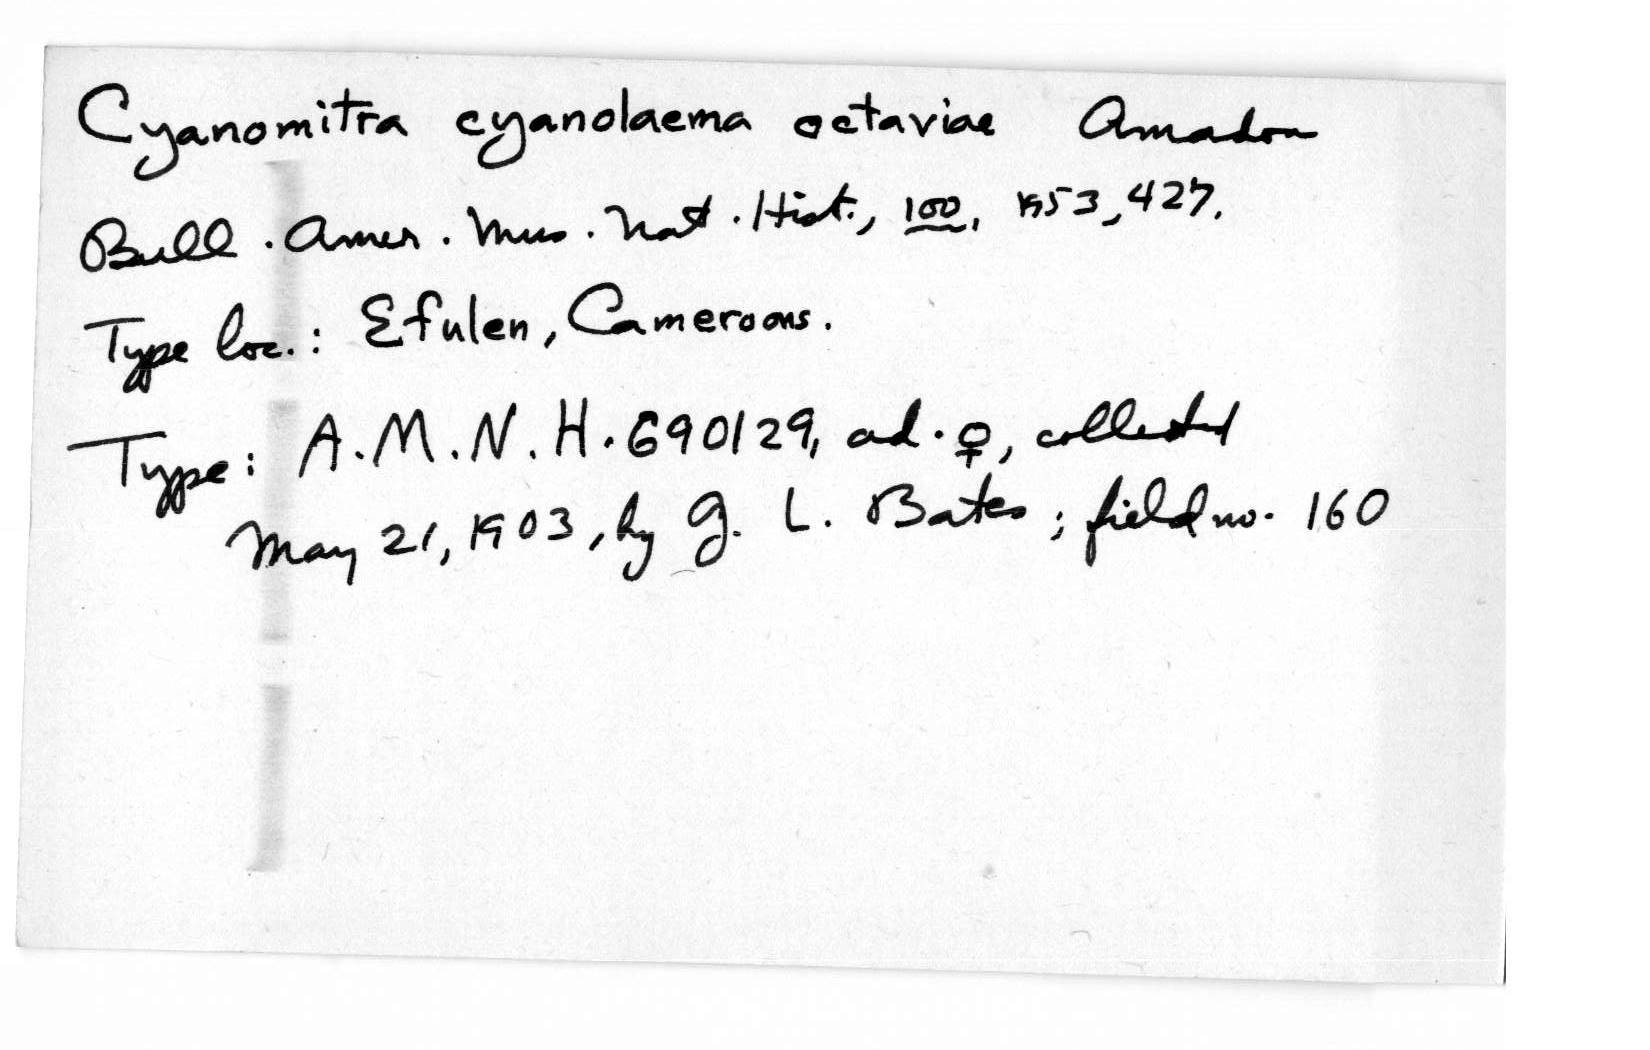 Cyanomitra cyanolaema octaviae Amadon
Bull. Amer. Mus. Nat. Hist., 100, 1953, 427.
Type loc.: Efulen, Cameroons.
Type: A.M.N.H. 690129, ad. ♀, collected
May 21, 1903, by G. L. Bates; field no. 160